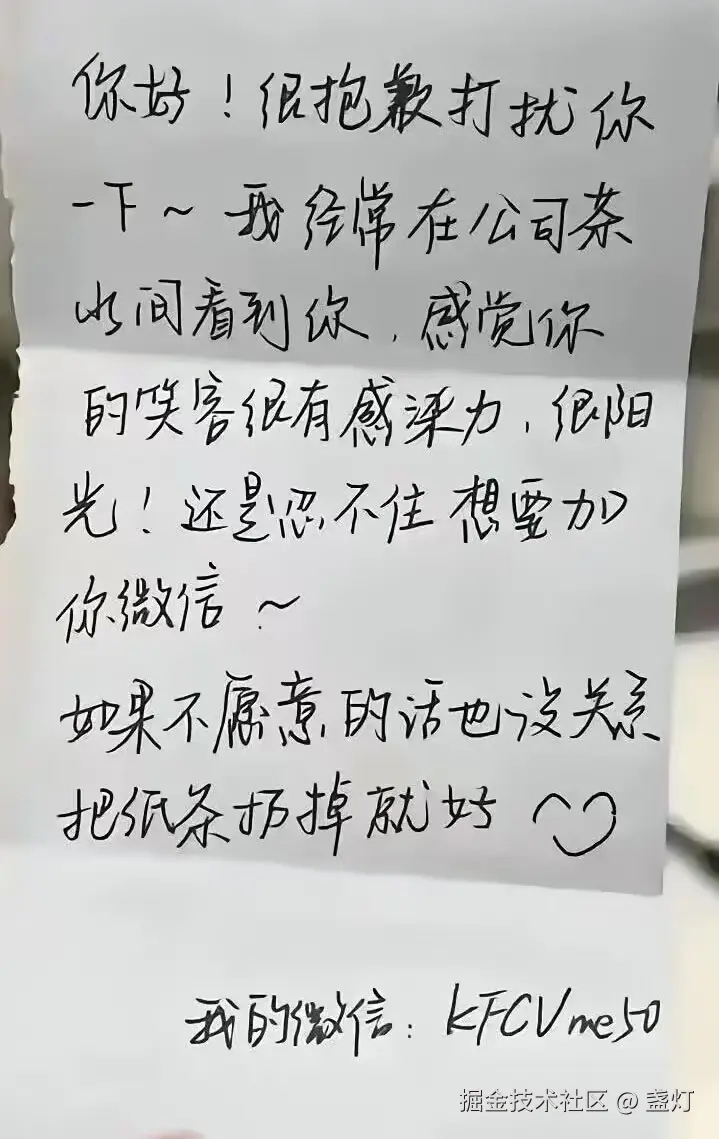 你好！很抱歉打扰你
一下~ 我经常在公司茶
水间看到你，感觉你
的笑容很有感染力，很阳
光！还是忍不住想要加
你微信~
如果不愿意的话也没关系
把纸条扔掉就好
我的微信：KFCVme50
掘金技术社区 @ 盏灯